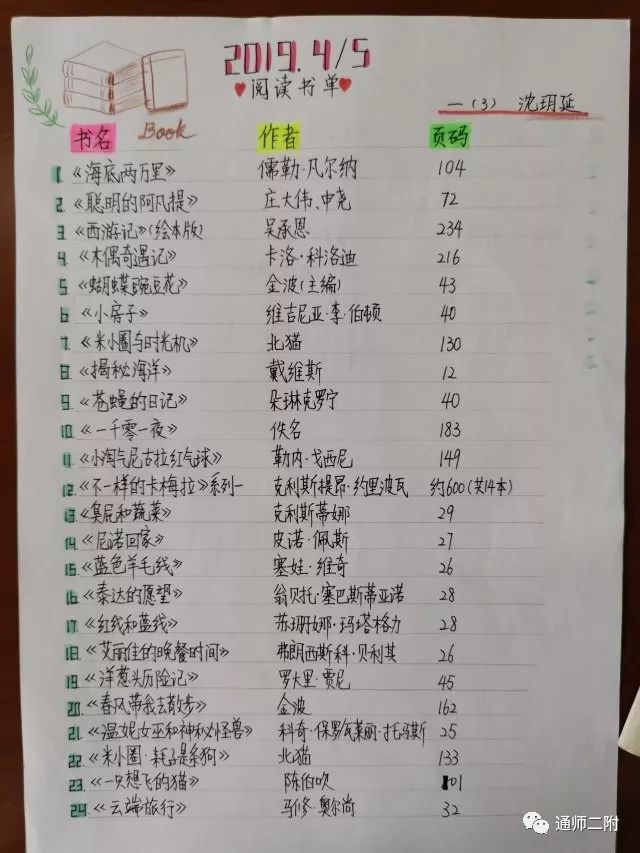 2019.4/5
阅读书单
一(3) 沈玥延
Book
书名 作者 页码
1. 《海底两万里》 儒勒·凡尔纳 104
2. 《聪明的阿凡提》 庄大伟、申尧 72
3. 《西游记》(绘本版) 吴承恩 234
4. 《木偶奇遇记》 卡洛·科洛迪 216
5. 《蝴蝶豌豆花》 金波(主编) 43
6. 《小房子》 维吉尼亚·李·伯顿 40
7. 《米小圈与时光机》 北猫 130
8. 《揭秘海洋》 戴维斯 12
9. 《苍蝇的日记》 朵琳克罗宁 40
10. 《一千零一夜》 佚名 183
11. 《小淘气尼古拉红气球》 勒内·戈西尼 149
12. 《不一样的卡梅拉》系列一 克利斯提昂·约里波瓦 约600(共14本)
13. 《臭屁和蔬菜》 克利斯蒂娜 29
14. 《尼诺回家》 皮诺·佩斯 27
15. 《蓝色羊毛线》 塞娃·维奇 26
16. 《泰达的愿望》 翁贝托·塞巴斯蒂亚诺 28
17. 《红线和蓝线》 苏珊娜·玛塔格力 28
18. 《艾丽佳的晚餐时间》 弗朗西斯科·贝利其 26
19. 《洋葱头历险记》 罗大里·贾尼 45
20. 《春风带我去散步》 金波 162
21. 《温妮女巫和神秘怪兽》 科奇·保罗瓦莱丽·托马斯 25
22. 《米小圈·耗子是条狗》 北猫 133
23. 《一只想飞的猫》 陈伯吹 101
24. 《云端旅行》 马修·奥尔尚 32
通师二附